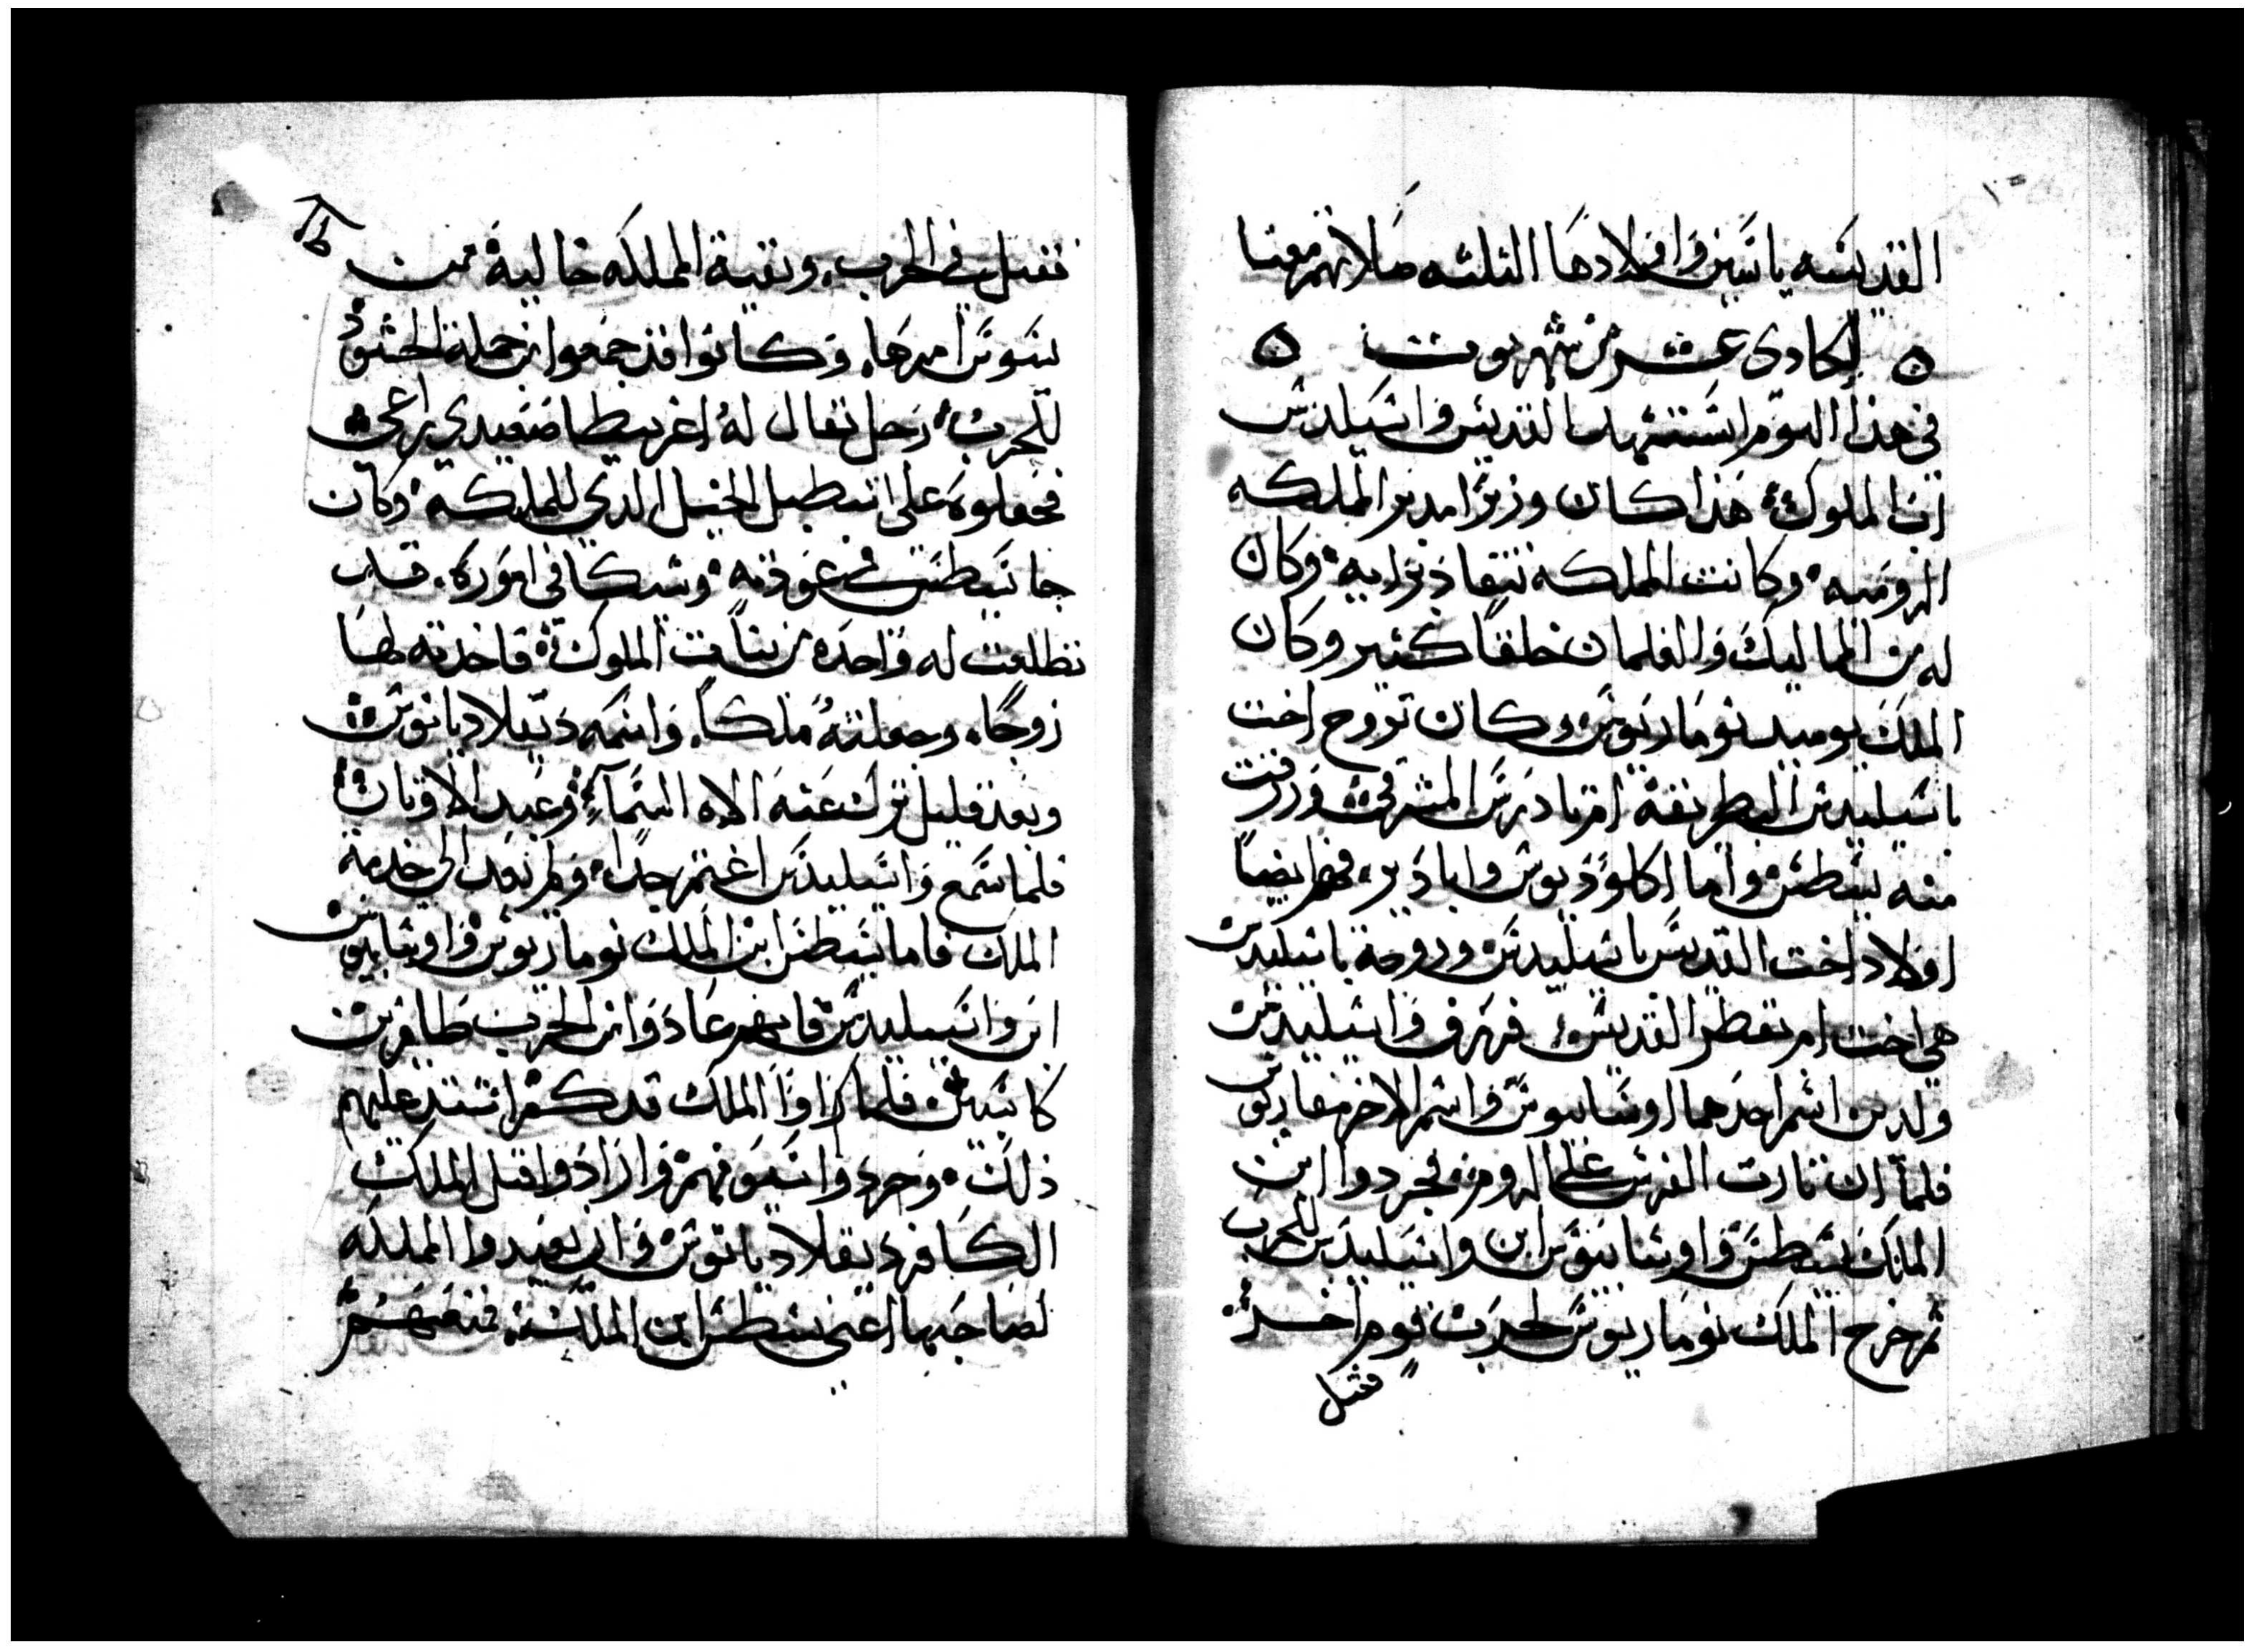 القديسه ياسين واولادها الثلثه صلاتهم معنا
الحادى عشر من شهر توت
فى هذا اليوم استشهد القديس واسيليدس
اب الملوك هذا كان وزيرا مدبر المملكه
الروميه وكانت المملكه تنقاد برايه وكان
له من المماليك والغلمان خلقا كثير وكان
الملك يوميد نوماريوس وكان تزوج اخت
باسيليدس البطريقه ام تادرس المشرقى ورزقت
منه يسطس واما اكلوديوس وابادير فهم ايضا
اولاد اخت القديس باسيليدس وزوجة باسيليدس
هى اخت ام بقطر القديس فرزق واسيليدس
ولدين اسم احدهما اوسابيوس واسم الاخر مقاريوس
فلما ان تارت الفرس على الروم فجردوا ابن
الملك يسطس واوسابيوس ابن واسيليدس للحرب
ثم خرج الملك نوماريوس لحرب قوم اخر
فقتل
فقتل فى الحرب وبقية المملكه خاليه ممن
يسوس امرها وكانوا قد جمعوا من جملة الجنود
للحرب رجل يقال له اغريبطا صعيدي راعى
فجعلوه على اسطبل الخيل الدي للمملكه وكان
جا يبطش فى عودته وشكا فى اموره قلب
تطلعت له واحده من بنات الملوك فاخدته لها
زوجا وجعلته ملكا واسمه دقلاديانوس
وبعد قليل ترك عنه الاه السماء وعبد الاوتان
فلما سمع واسيليدس اغتم جدا ولم يعد الى خدمة
الملك فاما يسطس ابن الملك نوماريوس واوسابيوس
ابن واسيليدس فانهم عادوا من الحرب ظافرين
كاسبين فلما راوا الملك قد كفر اشتد عليهم
ذلك وجردوا سيوفهم وارادوا قتل الملك
الكافر دقلاديانوس وان يعيدوا المملكه
لصاحبها اعنى يسطس ابن الملك فمنعهم